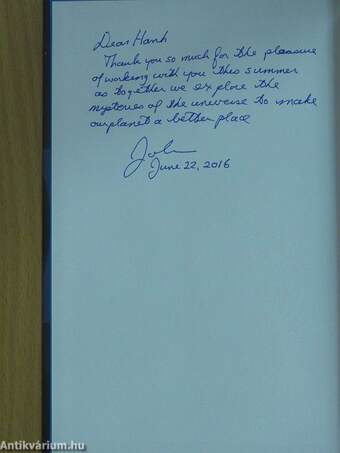 Dear Hanh
Thank you so much for the pleasure
of working with you this summer
as together we explore the
mysteries of the universe to make
our planet a better place
John
June 22, 2016
Antikvárium.hu